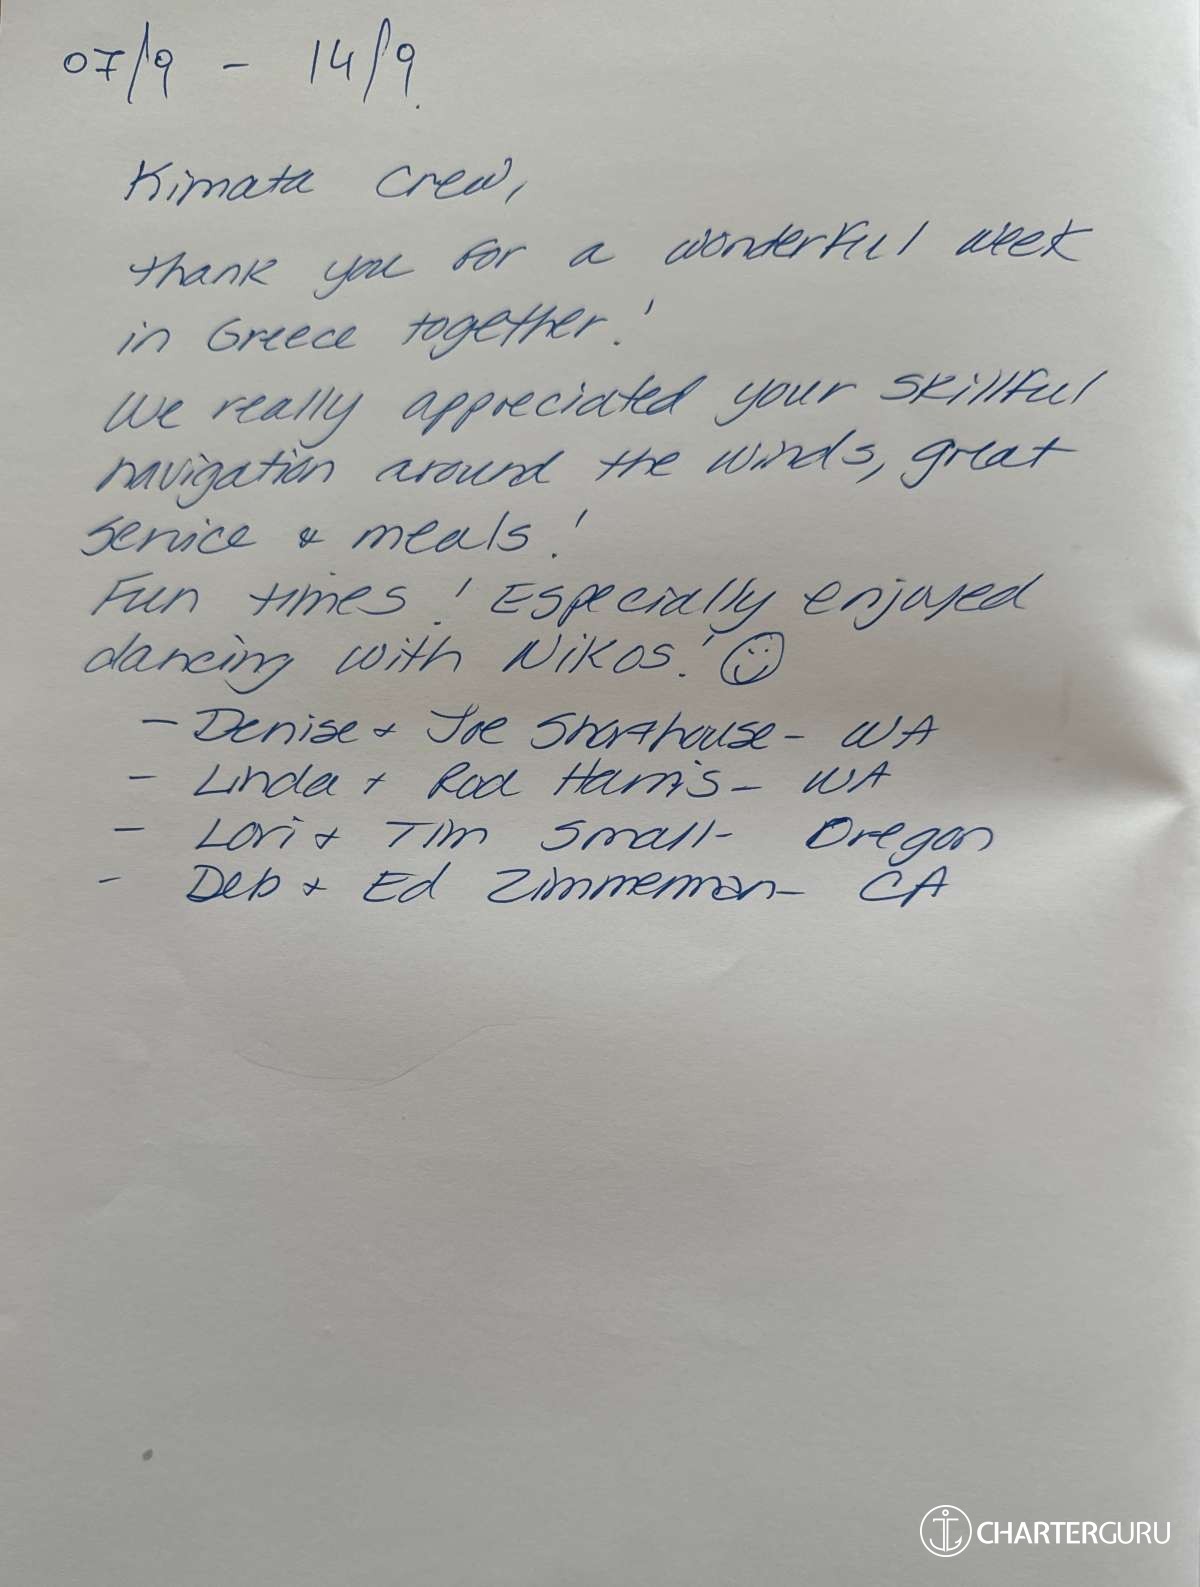 07/9 - 14/9
Kimata Crew,
thank you for a wonderful week
in Greece together!
We really appreciated your skillful
navigation around the winds, great
service & meals!
Fun times! Especially enjoyed
dancing with Nikos!
- Denise + Joe Shorthouse - WA
- Linda + Rod Harris - WA
- Lori + Tim Small - Oregon
- Deb + Ed Zimmerman - CA
CHARTERGURU